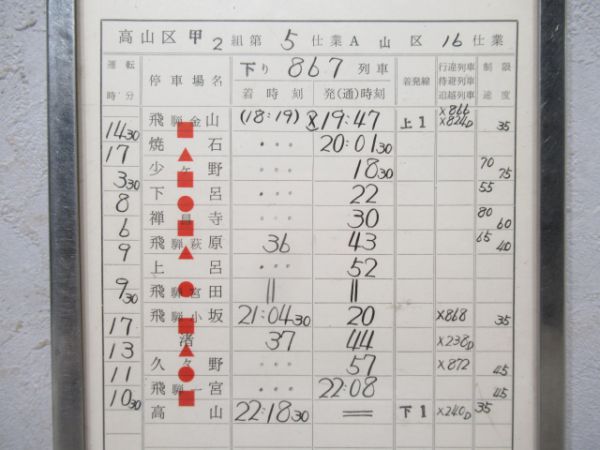 高山区甲2組第5仕業A 山区16仕業
運転時分 停車場名 下り867列車 着発線 行違列車 待避列車 追越列車 制限速度
着時刻 発(通)時刻
飛騨金山 (18:19) 19:47 上1 ×866 ×824D 35
14 30
焼石 ・・・ 20:01 30
17
少ヶ野 ・・・ 18 30 70 75
3 30
下呂 ・・・ 22 55
8
禅昌寺 ・・・ 30 80 60
6
飛騨萩原 36 43 65 40
9
上呂 ・・・ 52
飛騨宮田 || ||
9 30
飛騨小坂 21:04 30 20 ×868 35
17
渚 37 44 ×238D
13
久々野 ・・・ 57 ×872 45
11
飛騨一宮 ・・・ 22:08 45
10 30
高山 22:18 30 == 下1 ×240D 35